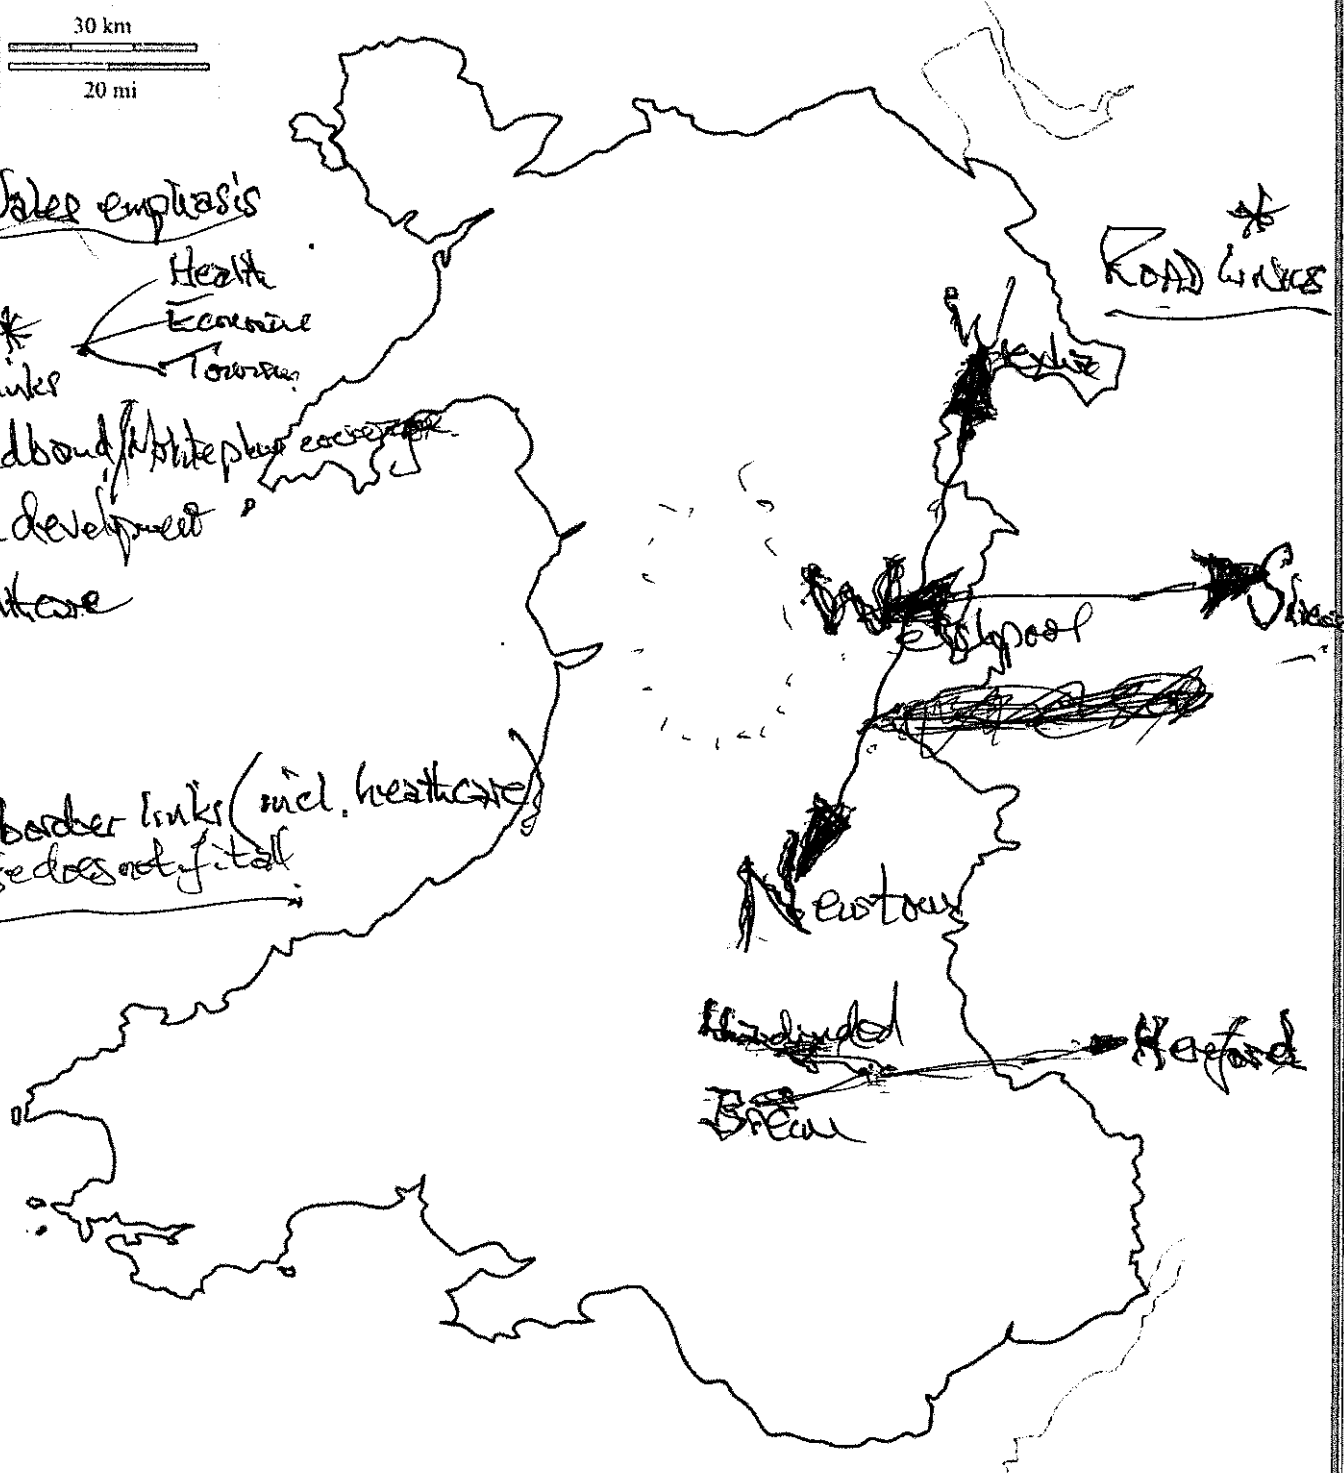 30 km
20 mi
Wales emphasis
Health
Economic
Tourism
links
dband/Mobile phone coverage
development
thcare
border links (incl. heathcare)
e does not fit all
ROAD LINKS
Welshpool
Newtown
Llandindod
Hereford
Brecon